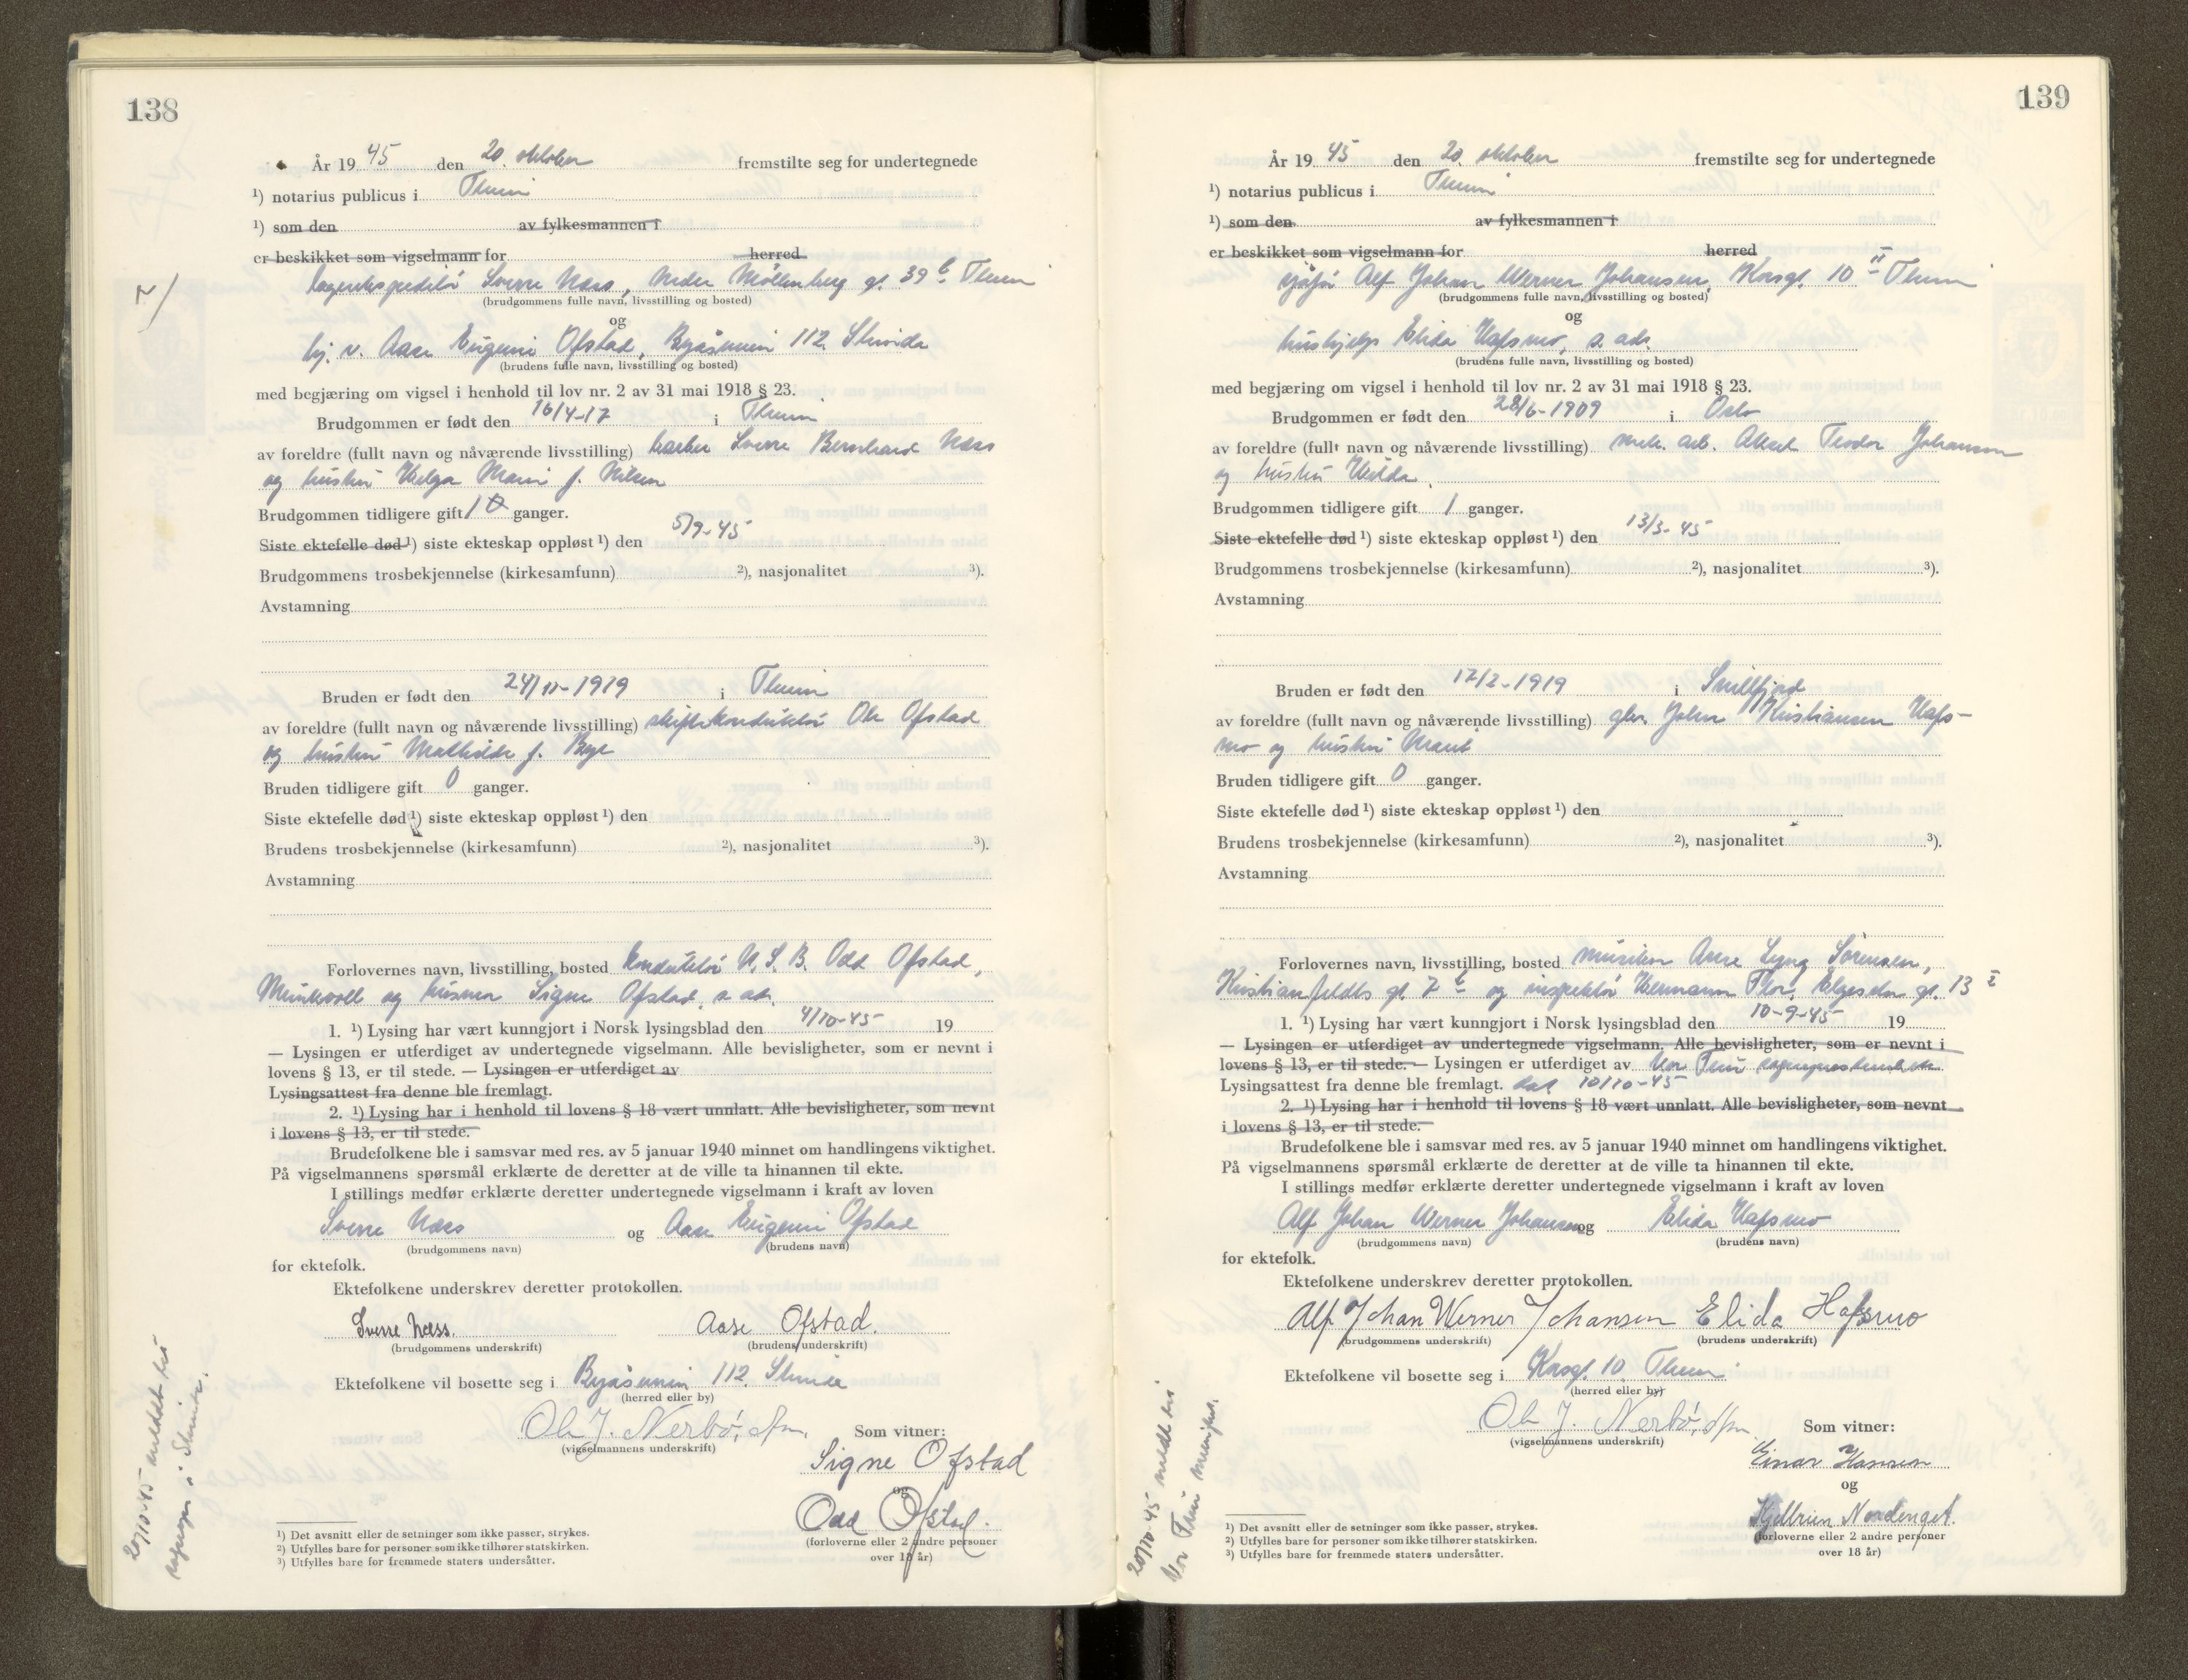 138
År 19 45 den 20. oktober fremstilte seg for undertegnede
¹) notarius publicus i Theim
¹) som den av fylkesmannen i
er beskikket som vigselmann for herred
lagerekspeditør Sverre Næss, Nedre Møllenberg gt. 39 b Theim
(brudgommens fulle navn, livsstilling og bosted)
og
hj. v. Aase Eugenie Ofstad, Byåsveien 112 Strinda
(brudens fulle navn, livsstilling og bosted)
med begjæring om vigsel i henhold til lov nr. 2 av 31 mai 1918 § 23.
Brudgommen er født den 16/4-17 i Theim
av foreldre (fullt navn og nåværende livsstilling) barber Sverre Bernhard Næss
og hustru Helga Marie f. Nilsen
Brudgommen tidligere gift 1 ganger.
Siste ektefelle død ¹) siste ekteskap oppløst ¹) den 5/9-45
Brudgommens trosbekjennelse (kirkesamfunn) ²), nasjonalitet ³).
Avstamning
Bruden er født den 24/11-1919 i Theim
av foreldre (fullt navn og nåværende livsstilling) skiftekonduktør Ole Ofstad
og hustru Mathilde f. Bye
Bruden tidligere gift 0 ganger.
Siste ektefelle død ¹) siste ekteskap oppløst ¹) den
Brudens trosbekjennelse (kirkesamfunn) ²), nasjonalitet ³).
Avstamning
Forlovernes navn, livsstilling, bosted konduktør N.S.B. Odd Ofstad,
Munkvoll og husmor Signe Ofstad, s. ad.
1. ¹) Lysing har vært kunngjort i Norsk lysingsblad den 4/10-45 19
— Lysingen er utferdiget av undertegnede vigselmann. Alle bevisligheter, som er nevnt i
lovens § 13, er til stede. — Lysingen er utferdiget av
Lysingsattest fra denne ble fremlagt.
2. ¹) Lysing har i henhold til lovens § 18 vært unnlatt. Alle bevisligheter, som nevnt
i lovens § 13, er til stede.
Brudefolkene ble i samsvar med res. av 5 januar 1940 minnet om handlingens viktighet.
På vigselmannens spørsmål erklærte de deretter at de ville ta hinannen til ekte.
I stillings medfør erklærte deretter undertegnede vigselmann i kraft av loven
Sverre Næss og Aase Eugenie Ofstad
(brudgommens navn) (brudens navn)
for ektefolk.
Ektefolkene underskrev deretter protokollen.
Sverre Næss. Aase Ofstad.
(brudgommens underskrift) (brudens underskrift)
Ektefolkene vil bosette seg i Byåsveien 112 Strinda
(herred eller by)
Ole J. Nerbö, dfm. Som vitner:
(vigselmannens underskrift)
Signe Ofstad
og
Odd Ofstad.
(forloverne eller 2 andre personer
over 18 år)
¹) Det avsnitt eller de setninger som ikke passer, strykes.
²) Utfylles bare for personer som ikke tilhører statskirken.
³) Utfylles bare for fremmede staters undersåtter.
20/10-45 meldt til
sognepr. i Strinda.
139
År 19 45 den 20. oktober fremstilte seg for undertegnede
¹) notarius publicus i Theim
¹) som den av fylkesmannen i
er beskikket som vigselmann for herred
sjåfør Alf Johan Werner Johansen, Korsgt. 10 II Theim
(brudgommens fulle navn, livsstilling og bosted)
og
hushjelp Elida Hafsmo, s. ad.
(brudens fulle navn, livsstilling og bosted)
med begjæring om vigsel i henhold til lov nr. 2 av 31 mai 1918 § 23.
Brudgommen er født den 28/6-1909 i Oslo
av foreldre (fullt navn og nåværende livsstilling) mek. arb. Aksel Teodor Johansen
og hustru Hilda.
Brudgommen tidligere gift 1 ganger.
Siste ektefelle død ¹) siste ekteskap oppløst ¹) den 13/3-45
Brudgommens trosbekjennelse (kirkesamfunn) ²), nasjonalitet ³).
Avstamning
Bruden er født den 12/2-1919 i Snillfjord
av foreldre (fullt navn og nåværende livsstilling) gbr. John Kristiansen Hafs-
mo og hustru Marit
Bruden tidligere gift 0 ganger.
Siste ektefelle død ¹) siste ekteskap oppløst ¹) den
Brudens trosbekjennelse (kirkesamfunn) ²), nasjonalitet ³).
Avstamning
Forlovernes navn, livsstilling, bosted musiker Arne Lyng Sørensen,
Kristianfeldts gt. 7 b og inspektør Hermann Flor, Elgeseter gt. 13 I
1. ¹) Lysing har vært kunngjort i Norsk lysingsblad den 10-9-45 19
— Lysingen er utferdiget av undertegnede vigselmann. Alle bevisligheter, som er nevnt i
lovens § 13, er til stede. — Lysingen er utferdiget av Vor Frue
Lysingsattest fra denne ble fremlagt. dat 10/10-45
2. ¹) Lysing har i henhold til lovens § 18 vært unnlatt. Alle bevisligheter, som nevnt
i lovens § 13, er til stede.
Brudefolkene ble i samsvar med res. av 5 januar 1940 minnet om handlingens viktighet.
På vigselmannens spørsmål erklærte de deretter at de ville ta hinannen til ekte.
I stillings medfør erklærte deretter undertegnede vigselmann i kraft av loven
Alf Johan Werner Johansen og Elida Hafsmo
(brudgommens navn) (brudens navn)
for ektefolk.
Ektefolkene underskrev deretter protokollen.
Alf Johan Werner Johansen Elida Hafsmo
(brudgommens underskrift) (brudens underskrift)
Ektefolkene vil bosette seg i Korsgt. 10. Theim
(herred eller by)
Ole J. Nerbö, dfm. Som vitner:
(vigselmannens underskrift)
Einar Hansen
og
Kjellrun Nordenget.
(forloverne eller 2 andre personer
over 18 år)
¹) Det avsnitt eller de setninger som ikke passer, strykes.
²) Utfylles bare for personer som ikke tilhører statskirken.
³) Utfylles bare for fremmede staters undersåtter.
20/10-45 meldt til
Vor Frue menighet.